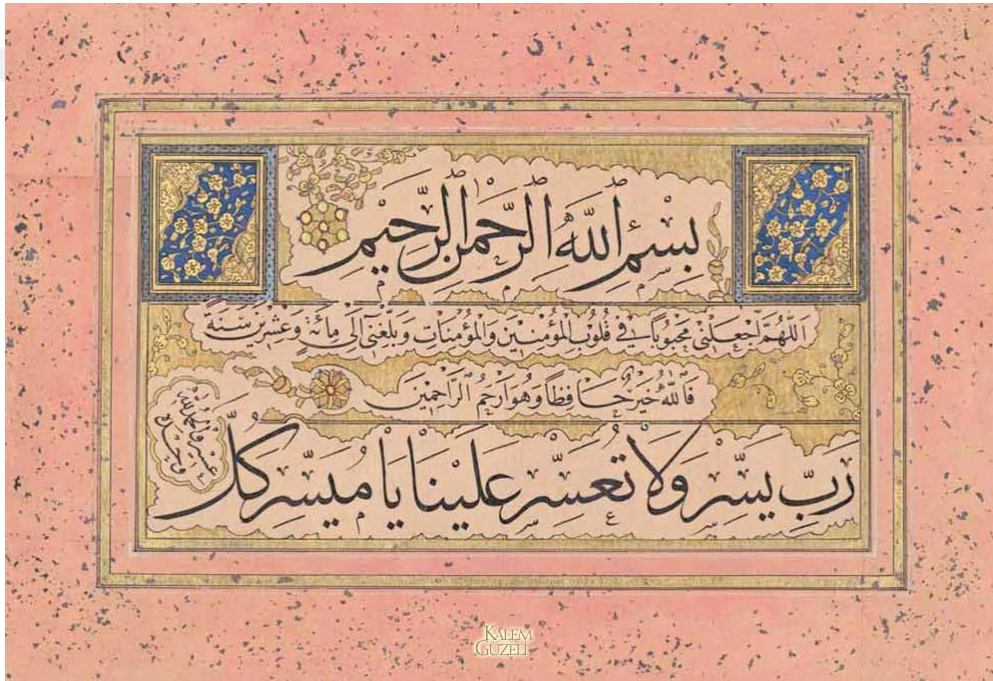 بِسْمِ اللَّهِ الرَّحْمٰنِ الرَّحِيمِ
اَللّٰهُمَّ اجْعَلْنِي مَحْبُوبًا فِي قُلُوبِ الْمُؤْمِنِينَ وَالْمُؤْمِنَاتِ وَبَلِّغْنِي إِلَى مِائَةٍ وَعِشْرِينَ سَنَةً
فَاللّٰهُ خَيْرٌ حَافِظًا وَهُوَ اَرْحَمُ الرَّاحِمِينَ
رَبِّ يَسِّرْ وَلَا تُعَسِّرْ عَلَيْنَا يَا مُيَسِّرَ كُلِّ
عَسِيرٍ وَالْحَمْدُ لِلّٰهِ
وَحْدَهُ
KALEM
GÜZELİ